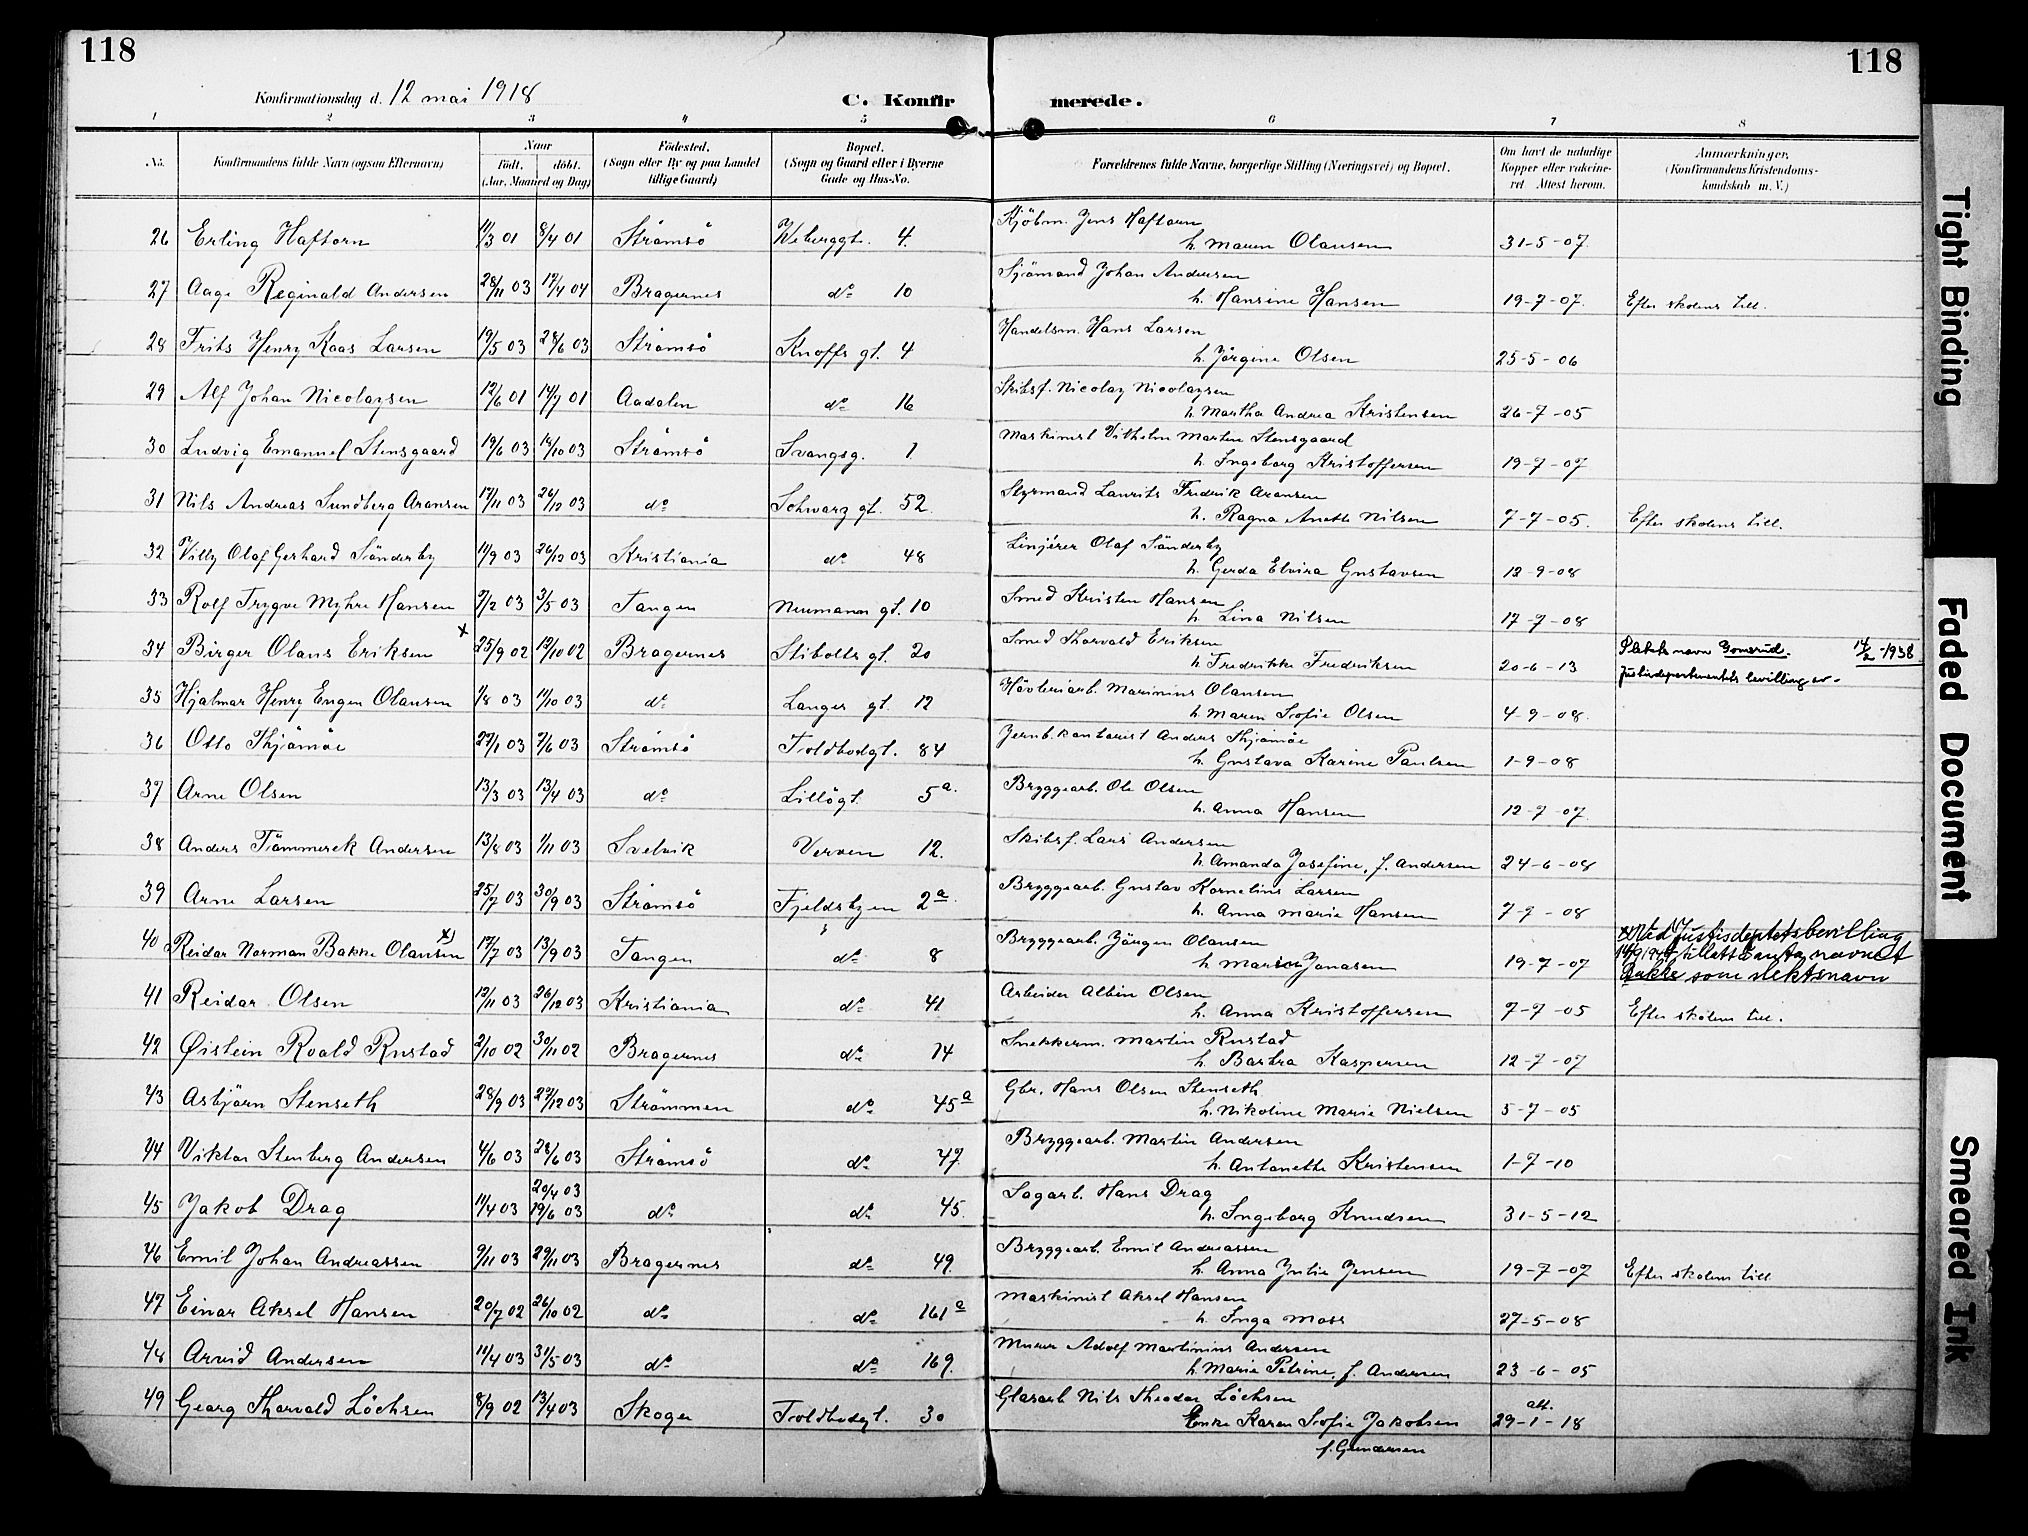 118
118
Konfirmationsdag d. 12 mai 1918
C. Konfir
merede.
1 2 3 4 5 6 7 8
No. Konfirmandens fulde Navn (ogsaa Efternavn)
Naar
födt. döbt.
(Aar, Maaned og Dag)
Födested.
(Sogn eller By og paa Landet
tillige Gaard)
Bopæl.
(Sogn og Gaard eller i Byerne
Gade og Hus-No.
Forældrenes fulde Navne, borgerlige Stilling (Næringsvei) og Bopæl.
Om havt de naturlige
Kopper eller vakcine-
ret Attest herom.
Anmærkninger,
(Konfirmandens Kristendoms-
kundskab m. V.)
Kjöbm. Jens Haftorn
26 Erling Haftorn 11/3 01 8/4 01 Strömsö Weberggt. 4. h. Maren Olausen 31-5-07.
Sjömand Johan Andersen
27 Aage Reginald Andersen 28/11 03 17/4 04 Bragernes do 10 h. Hansine Hansen 19-7-07. Efter skolens till.
Handelsm. Hans Larsen
28 Frits Henry Kaas Larsen 19/5 03 28/6 03 Strömsö Knoffs gt. 4 h. Jörgine Olsen 25-5-06
Skibsf. Nicolay Nicolaysen
29 Alf Johan Nicolaysen 12/6 01 14/7 01 Aadalen do 16 h. Martha Andrea Kristensen 26-7-05
Maskinist Vilhelm Martin Stensgaard
30 Ludvig Emanuel Stensgaard 19/6 03 14/10 03 Strömsö Svangsg. 1 h. Ingeborg Kristoffersen 19-7-07
Styrmand Laurits Fredrik Aronsen
31 Nils Andreas Sundberg Aronsen 17/11 03 26/12 03 do Schwarz gt. 52. h. Ragna Anette Nilsen 7-7-05. Efter skolens till.
Linjérer Olaf Sönderby
32 Villy Olaf Gerhard Sönderby 11/9 03 26/12 03 Kristiania do 48 h. Gerda Elvira Gustavsen 12-9-08
Smed Kristen Hansen
33 Rolf Trygve Myhre Hansen 7/2 03 3/5 03 Tangen Neumanns gt. 10 h. Lina Nilsen 17-7-08
Smed Thorvald Eriksen
34 Birger Olaus Eriksen x 25/9 02 19/10 02 Bragernes Stibolts gt. 20 h. Fredrikke Fredriksen 20-6-13 Slektsnavn Gomsrud. 14/2-1938
Justisdepartementets bevilling av-
Hövleriarb. Marinius Olausen
35 Hjalmar Henry Eugen Olausen 1/8 03 11/10 03 do Langes gt. 12 h. Maren Sofie Olsen 4-9-08.
Jernb.kontorist Anders Thjömöe
36 Otto Thjömöe 27/1 03 7/6 03 Strömsö Toldbodgt. 84 h. Gustava Karine Paulsen 1-9-08
Bryggearb. Ole Olsen
37 Arne Olsen 13/3 03 13/4 03 do Lillögt. 5a. h. Anna Hansen 12-7-07.
Skibsf. Lars Andersen
38 Anders Tömmerek Andersen 13/8 03 1/11 03 Svelvik Verven 12. h. Amanda Josefine, f. Andersen 24-6-08
Bryggearb. Gustav Kornelius Larsen
39 Arne Larsen 25/7 03 30/9 03 Strömsö Fjeldsbyen 2a. h. Anna Marie Hansen 7-9-08
Bryggearb. Jörgen Olausen
40 Reidar Norman Bakke Olausen x) 17/7 03 13/9 03 Tangen do 8 h. Marie Jonasen 19-7-07 x Med Justisdeptets bevilling
tillatt å anta navnet
Bakke som slektsnavn
Arbeider Albin Olsen
41 Reidar Olsen 12/11 03 26/12 03 Kristiania do 41 h. Anna Kristoffersen 7-7-05 Efter skolens till.
Snekkerm. Martin Rustad
42 Øistein Roald Rustad 2/10 02 30/11 02 Bragernes do 14 h. Barbra Kaspersen 12-7-07
Gbr. Hans Olsen Stenseth
43 Asbjörn Stenseth 28/9 03 27/12 03 Strömmen do 45a h. Nikoline Marie Nielsen 5-7-05
Bryggearb. Martin Andersen
44 Viktor Stenberg Andersen 4/6 03 28/6 03 Strömsö do 47. h. Antonette Kristensen 1-7-10
20/4 03 Sagarb. Hans Drag
45 Jakob Drag 11/4 03 19/6 03 do do 45. h. Ingeborg Knudsen 31-5-12
Bryggearb. Emil Andreassen
46 Emil Johan Andreassen 9/11 03 29/11 03 Bragernes do 49. h. Anna Julie Jensen 19-7-07 Efter skolens till
Maskinist Aksel Hansen
47 Einar Aksel Hansen 20/7 02 26/10 02 do do 161a h. Inga Moss 27-5-08
Murer Adolf Martinius Andersen
48 Arvid Andersen 11/4 03 31/5 03 do do 169. h. Marie Petrine, f. Andersen 23-6-05
Glasarb Nils Theodor Löchsen
49 Georg Thorvald Löchsen 8/9 02 13/4 03 Skoger Toldbodgt. 30 Enke Karen Sofie Jakobsen att. 29-1-18
f. Gundersen
Tight Binding
Faded Document
Smeared Ink